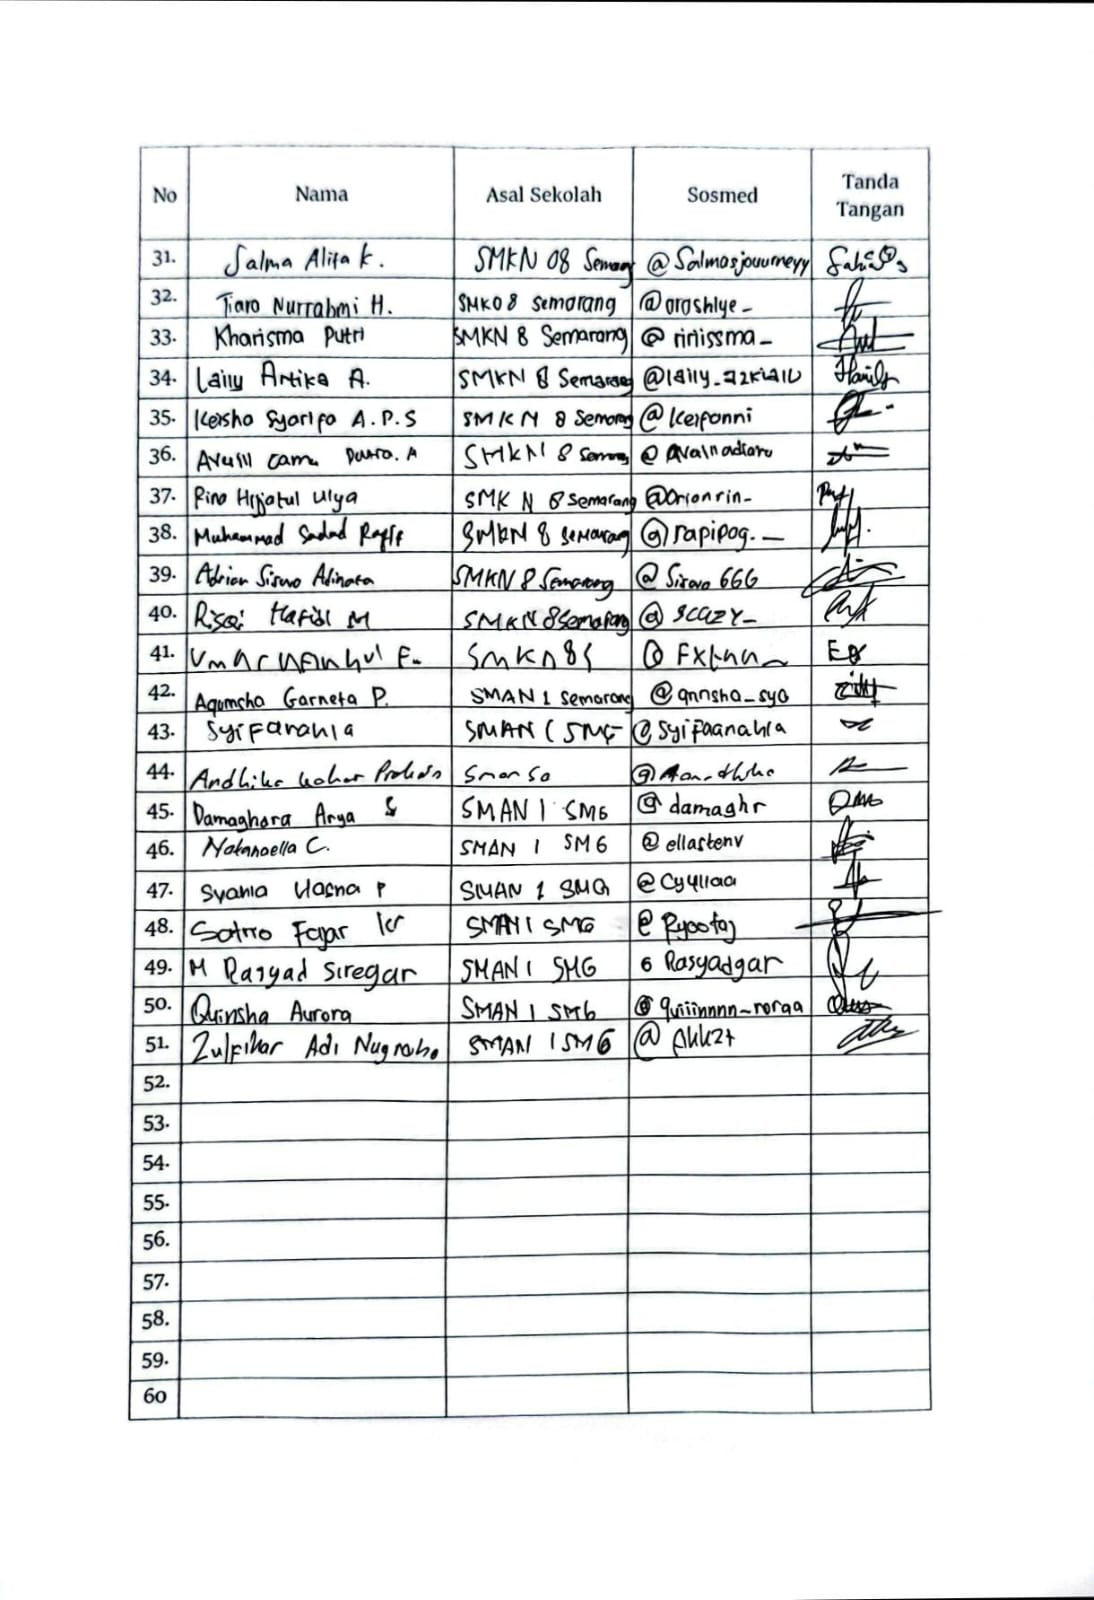 No Nama Asal Sekolah Sosmed Tanda Tangan
31. Salma Alifa K. SMKN 08 Semarang @Salmasjouurneyy
32. Tiara Nurrahmi H. SMK08 Semarang @arashlye_
33. Kharisma Putri SMKN 8 Semarang @rinissma_
34. Laily Artika A. SMKN 8 Semarang
35. Keisha Syarifa A.P.S SMKN 8 Semarang @keifanni
36. SMKN 8 Semarang
37. Rina Hijjatul Ulya SMK N 8 Semarang @orionrin_
38. Muhammad Sadad Rafif SMKN 8 Semarang @rapipog._
39. Adrian Siswo Adinata SMKN 8 Semarang
40. Hafidl M SMKN 8 Semarang @scazy_
41. Umar F. SMKN 8 S
42. Garneta P. SMAN 1 Semarang @qnnsha_sya
43. Syifanahla SMAN 1 SMG @Syifaanahla
44. Andhika Smansa
45. Damaghara Arya S SMAN 1 SMG @damaghr
46. Natanaella C. SMAN 1 SMG @ellastenv
47. Syahla Hasna P SMAN 1 SMG @Cyyllaa
48. Satrio Fajar SMAN 1 SMG @Ryootaj
49. M Rasyad Siregar SMAN 1 SMG Rasyadgar
50. Quinsha Aurora SMAN 1 SMG @quiiinnnn_roraa
51. Zulfikar Adi Nugroho SMAN 1 SMG
52.
53.
54.
55.
56.
57.
58.
59.
60